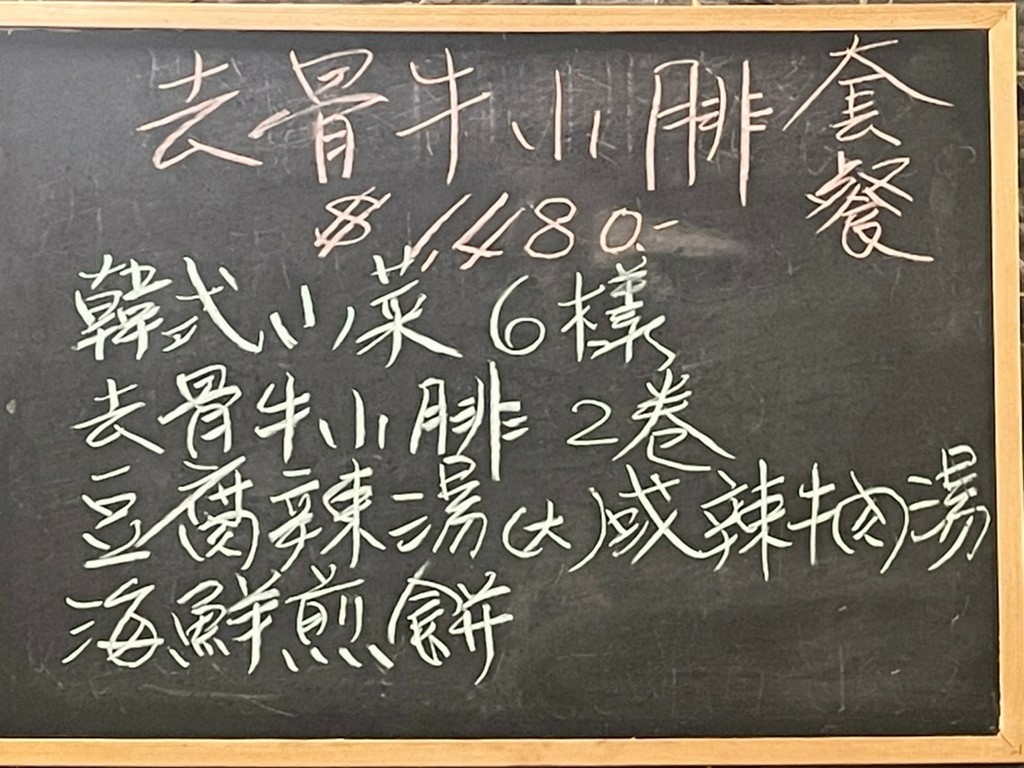 去骨牛小腓套餐
$1480.-
韓式小菜 6樣
去骨牛小腓 2卷
豆腐辣湯(大)或辣牛肉湯
海鮮煎餅